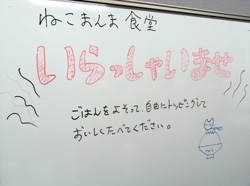 ねこまんま食堂
いらっしゃいませ
ごはんをよそって、自由にトッピングして
おいしくたべてください。